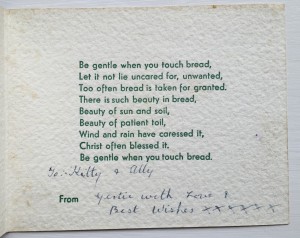 Be gentle when you touch bread,
Let it not lie uncared for, unwanted,
Too often bread is taken for granted.
There is such beauty in bread,
Beauty of sun and soil,
Beauty of patient toil,
Wind and rain have caressed it,
Christ often blessed it.
Be gentle when you touch bread.
To. Kitty & Ally
From Gertie with Love &
Best Wishes xxxxxx